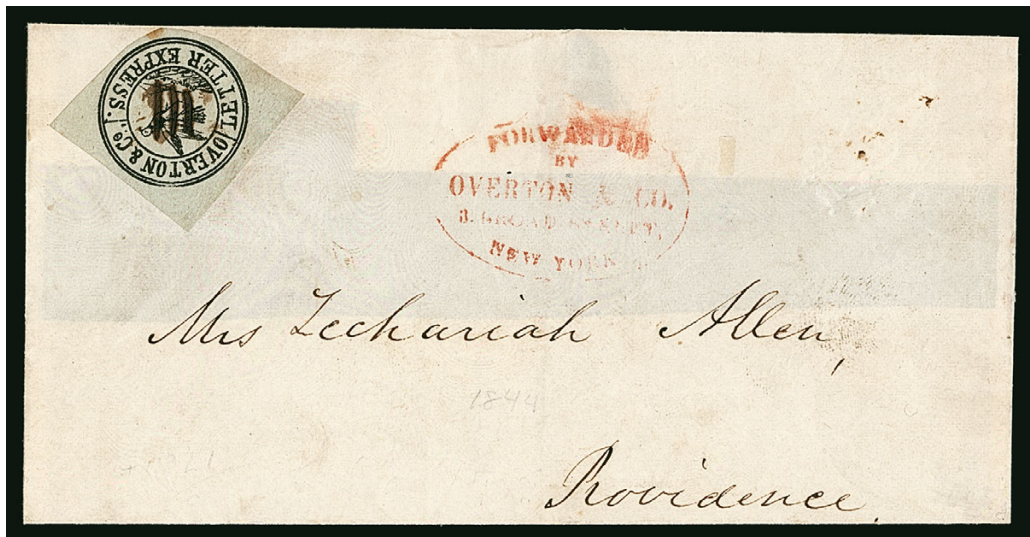 OVERTON & Co.
LETTER EXPRESS.
FORWARDED
BY
OVERTON & CO.
3. BROAD STREET,
NEW YORK
Mrs Zechariah Allen,
1844
Providence.